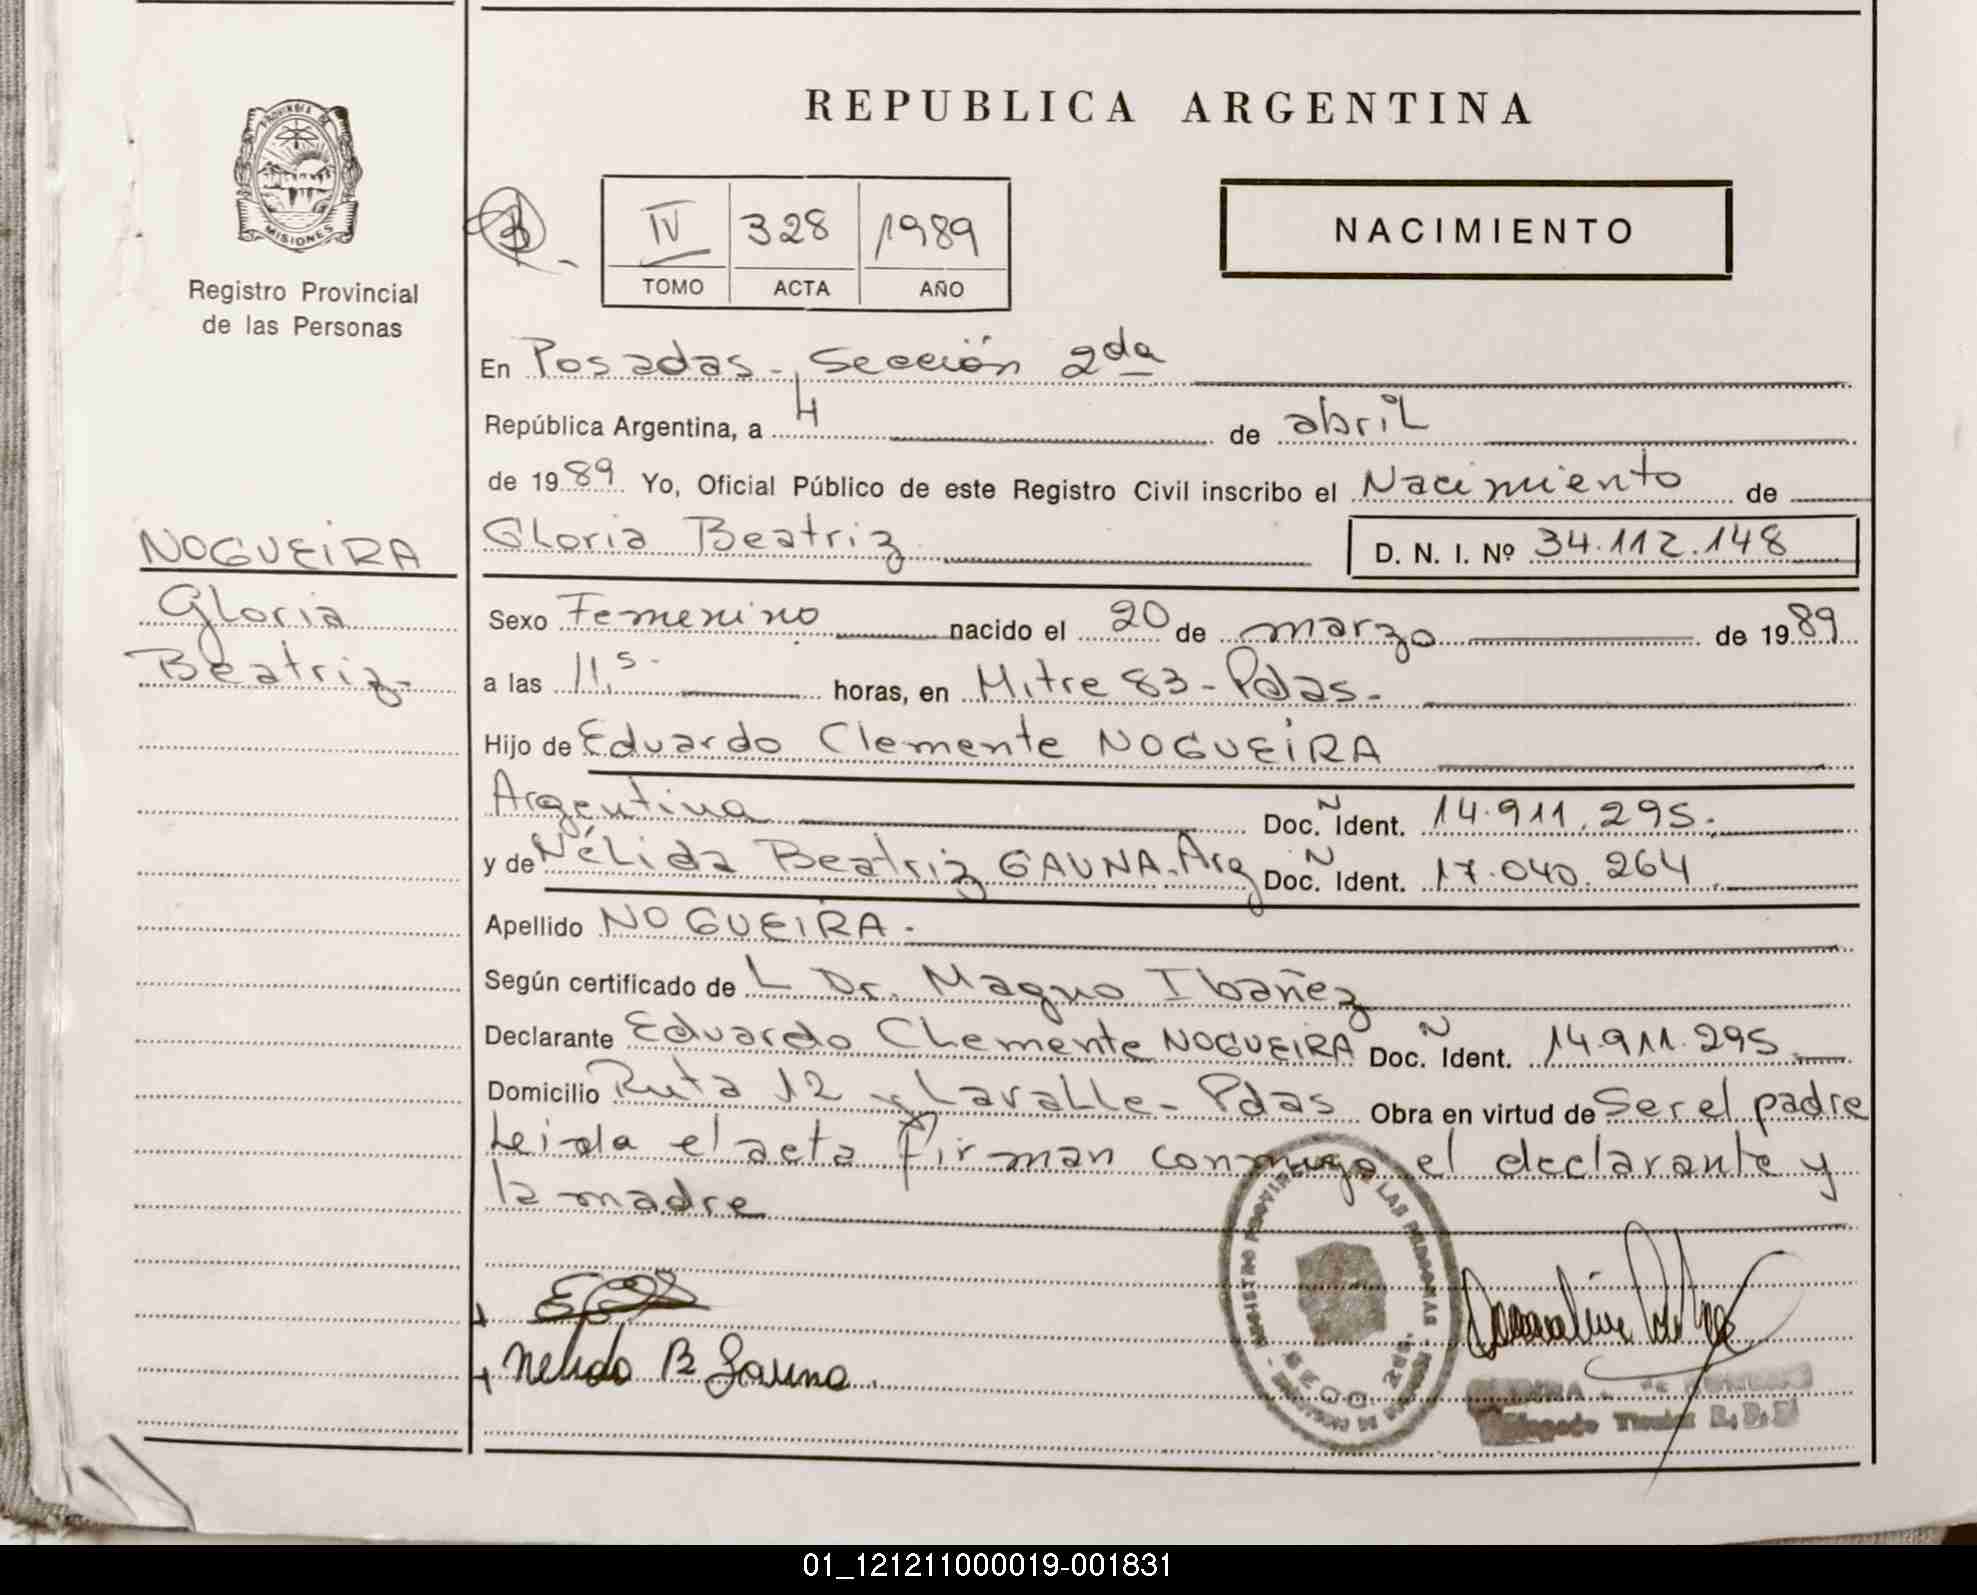 PROVINCIA DE
MISIONES
Registro Provincial
de las Personas
REPUBLICA ARGENTINA
IV 328 1989
TOMO ACTA AÑO
NACIMIENTO
En Posadas - Sección 2da
República Argentina, a 4 de abril
de 1989 Yo, Oficial Público de este Registro Civil inscribo el Nacimiento de
Gloria Beatriz D. N. I. Nº 34.112.148
NOGUEIRA
Gloria
Beatriz-
Sexo Femenino nacido el 20 de marzo de 1989
a las 11,5- horas, en Mitre 83 - Pdas.-
Hijo de Eduardo Clemente NOGUEIRA
Argentina Doc. Ñ Ident. 14.911.295.
y de Nélida Beatriz GAUNA. Arg Doc. Ñ Ident. 17.040.264
Apellido NOGUEIRA.
Según certificado de L Dr. Magno Ibañez
Declarante Eduardo Clemente NOGUEIRA Doc. Ñ Ident. 14.911.295
Domicilio Ruta 12 y Lavalle - Pdas Obra en virtud de Ser el padre
Leida el acta firman conmigo el declarante y
la madre
Nelida B Gauna.
01_121211000019-001831